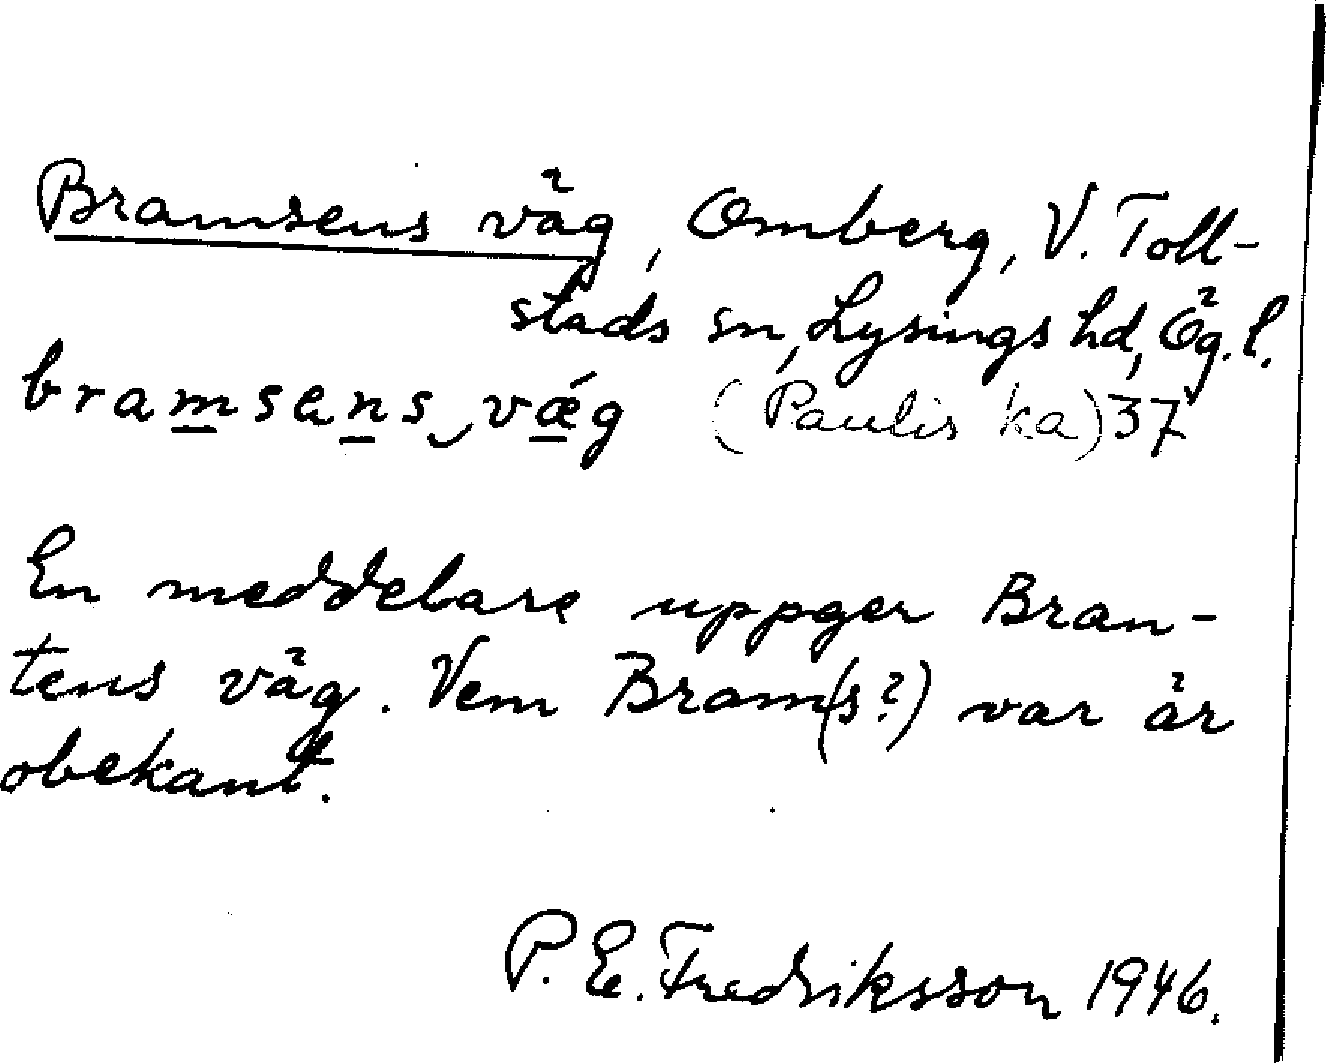 Bramsens väg, Omberg, V. Toll-
stads sn, Lysings hd, Ög. l.
bramsens väǵ (Paulis ka) 37
En meddelare uppger Bran-
tens väg. Vem Bram(s?) var är
obekant.
P. E. Fredriksson 1946.